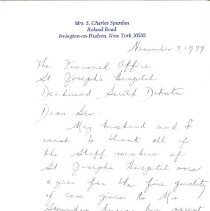 Mrs. S. Charles Spurdon
Ryland Road
Irvington-on-Hudson, New York 10533
November 7, 1977
The Financial Office
St. Joseph's Hospital
Deadwood, South Dakota
Dear Sir:
My husband and I
want to thank all of
the staff members of
St Joseph's Hospital once
again for the fine quality
of care given to Mr.
during his recent